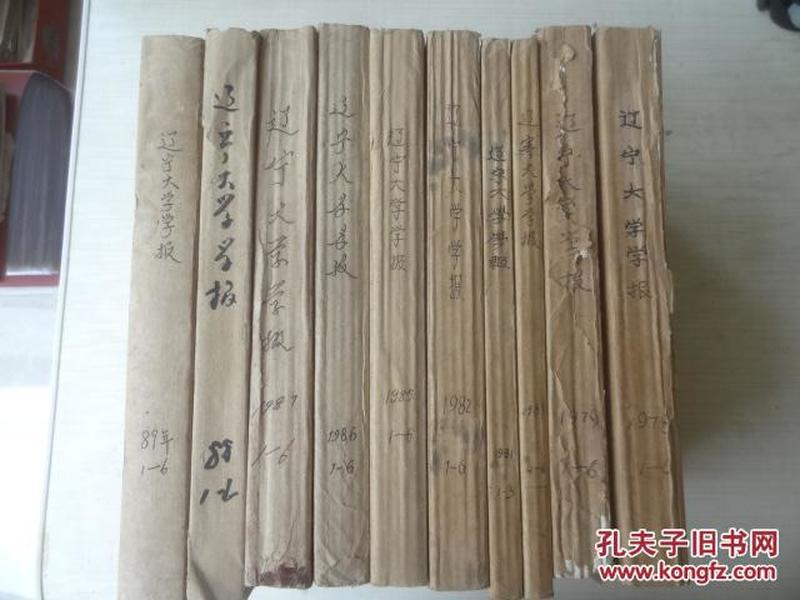 辽宁大学学报
89年
1-6
辽宁大学学报
88
辽宁大学学报
1987
1-6
辽宁大学学报
1986
1-6
辽宁大学学报
1985
1-6
辽宁大学学报
1982
1-6
辽宁大学学报
1981
1-3
辽宁大学学报
辽宁大学学报
1979
1-6
辽宁大学学报
孔夫子旧书网
www.kongfz.com